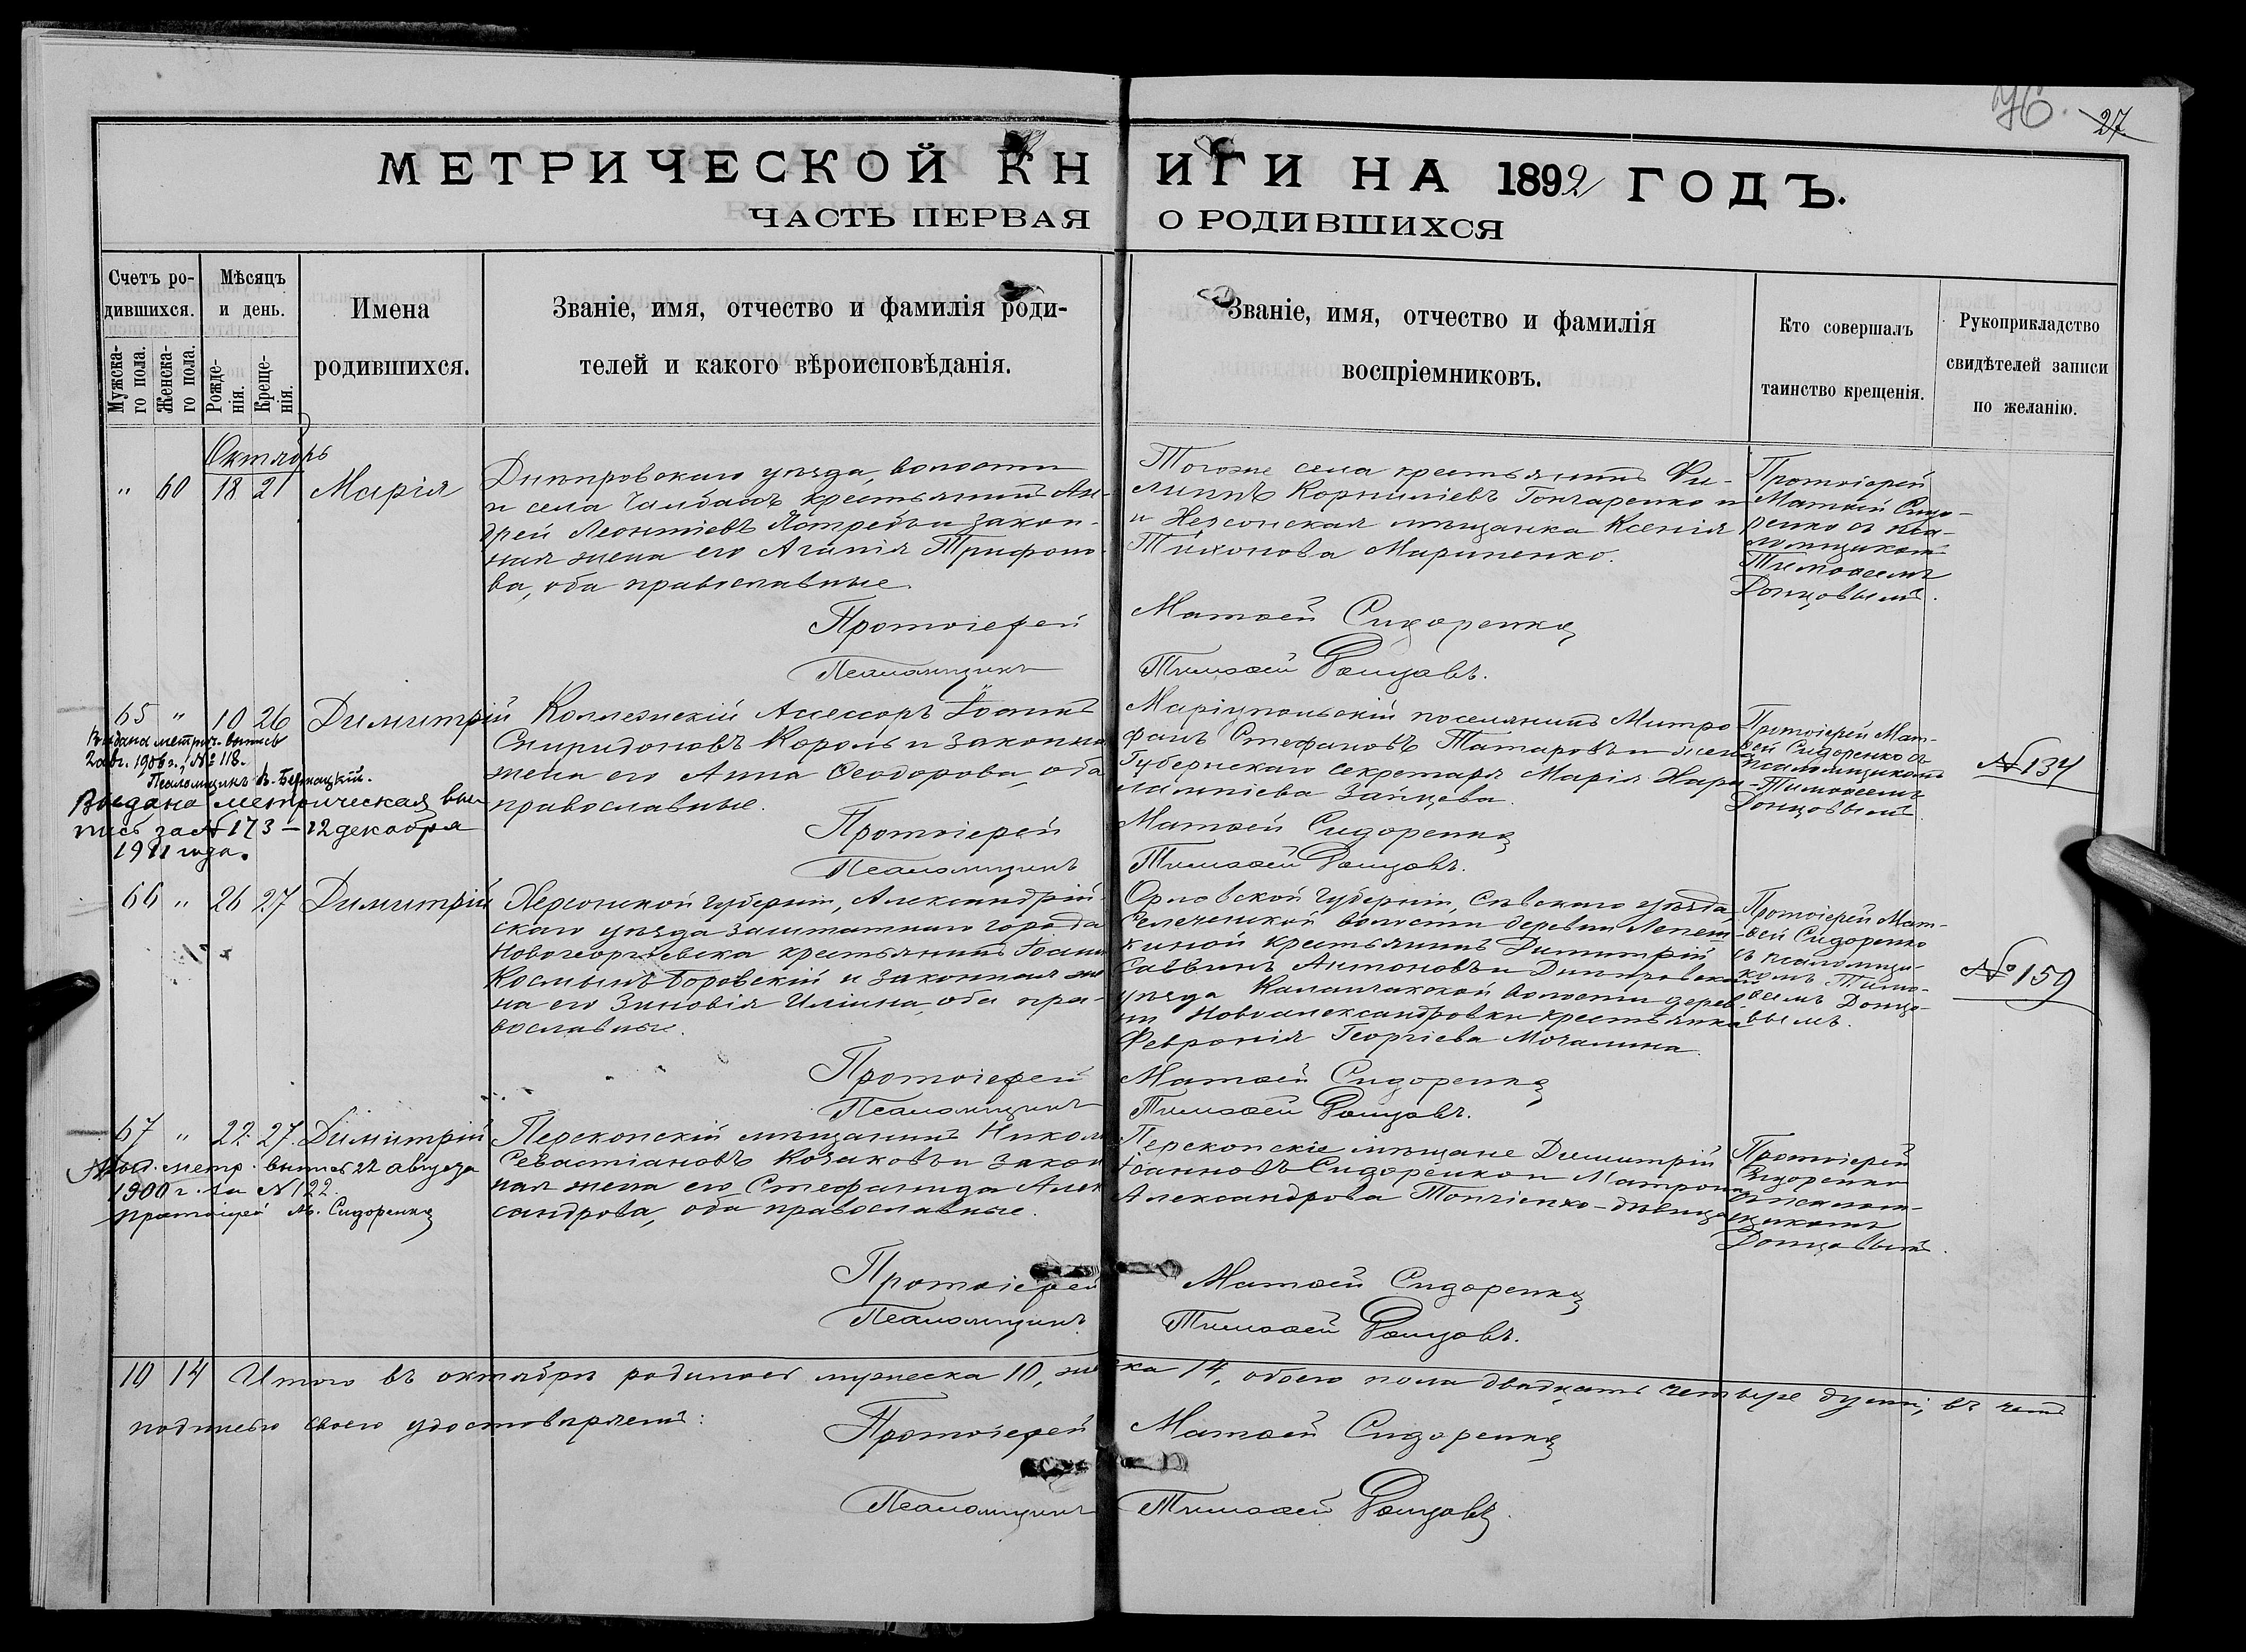 76. 27
МЕТРИЧЕСКОЙ КНИГИ НА 1892 ГОДЪ.
ЧАСТЬ ПЕРВАЯ О РОДИВШИХСЯ
Счетъ ро-
дившихся.
Мужска-
го пола.
Женска-
го пола.
Мѣсяцъ
и день.
Рожде-
нія.
Креще-
нія.
Имена
родившихся.
Званіе, имя, отчество и фамилія роди-
телей и какого вѣроисповѣданія.
Званіе, имя, отчество и фамилія
воспріемниковъ.
Кто совершалъ
таинство крещенія.
Рукоприкладство
свидѣтелей записи
по желанію.
Октябрь
" 60 18 21 Марія
Днѣпровскаго уѣзда, волости
и села Чалбасъ крестьянинъ Ан-
дрей Леонтіевъ Ястребъ и закон-
ная жена его Агапія Трифоно-
ва, оба православные.
Тогоже села крестьянинъ Фи-
липпъ Корниліевъ Гончаренко и
и Херсонская мѣщанка Ксенія
Тихонова Мариненко.
Протоіерей
Матѳей Сидо-
ренко съ пса-
ломщикомъ
Тимоѳеемъ
Донцовымъ.
Протоіерей Матѳей Сидоренко
Псаломщикъ Тимоѳей Донцовъ.
65 " 10 26 Димитрій
Выдана метрич. выпись
2 авг. 1906 г. № 118.
Псаломщикъ В. Бернацкій.
Выдана метрическая вы-
пись за № 173 – 12 декабря
1911 года.
Коллежскій Асессоръ Іоаннъ
Спиридоновъ Король и законная
жена его Анна Ѳеодорова, оба
православные.
Маріупольскій поселянинъ Митро
фанъ Стефановъ Татаровъ и жена
Губернскаго секретаря Марія Хара-
лампіева Зайцева.
Протоіерей Мат-
ѳей Сидоренко съ
псаломщикомъ
Тимоѳеемъ
Донцовымъ.
№ 134
Протоіерей Матѳей Сидоренко
Псаломщикъ Тимоѳей Донцовъ.
66 " 26 27 Димитрій
Херсонской губерніи, Александрій-
скаго уѣзда заштатнаго города
Новогеоргіевска крестьянинъ Іоаннъ
Космынъ Боровскій и законная же
на его Зиновія Иліина, оба пра-
вославные.
Орловской губерніи, Сѣвскаго уѣзда,
волости деревни Лепеш-
киной крестьянинъ Димитрій
Саввинъ Антоновъ и Днѣпровскаго
уѣзда Каланчакской волости дерев-
ни Новоалександровки крестьянка
Февронія Георгіева Мочалина.
Протоіерей Мат-
ѳей Сидоренко
съ псаломщи-
комъ Тимо-
ѳеемъ Донцо-
вымъ.
№ 159
Протоіерей Матѳей Сидоренко
Псаломщикъ Тимоѳей Донцовъ.
67 " 22 27 Димитрій
метр. выпись 22 августа
1900 г. за № 122
протоіерей М. Сидоренко
Перекопскій мѣщанинъ Никол
Севастіановъ Козаковъ и закон
ная жена его Стефанида Алек
сандрова, оба православные.
Перекопскіе мѣщане Димитрій
Іоанновъ Сидоренко и Матрона
Александрова Топчіенко – дѣвица
Протоіерей
Сидоренко
съ псалом-
щикомъ
Донцовымъ.
Протоіерей Матѳей Сидоренко
Псаломщикъ Тимоѳей Донцовъ.
10 14 Итого въ октябрѣ родилось мужеска 10, женска 14, обоего пола двадцать четыре души, въ чемъ
подписью своею удостовѣряемъ:
Протоіерей Матѳей Сидоренко
Псаломщикъ Тимоѳей Донцовъ.